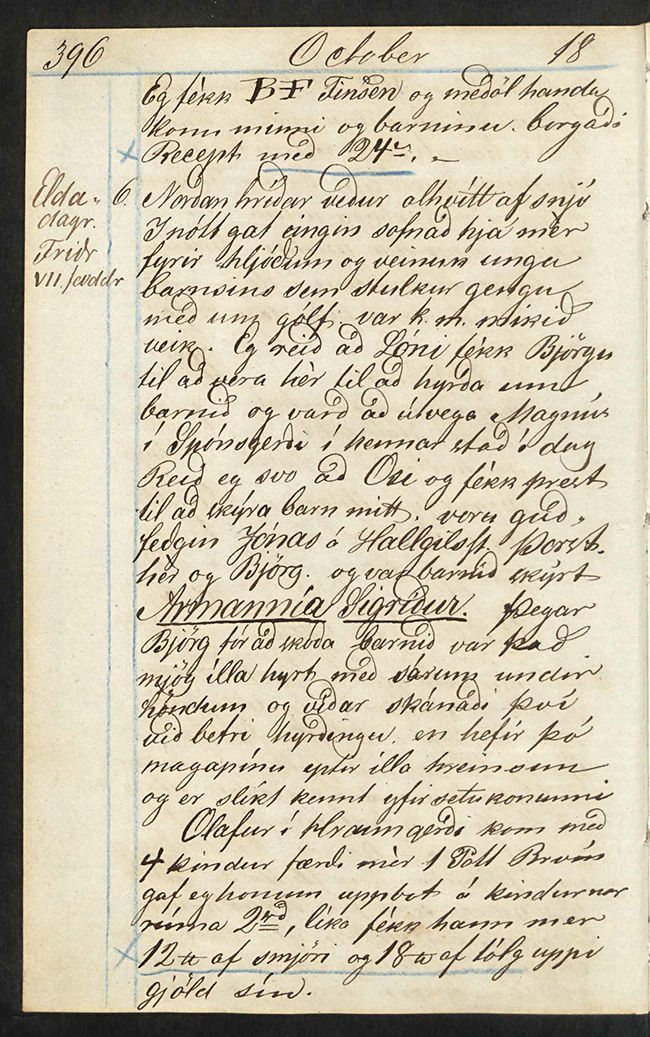 396 October 18
Eg fékk BF Finsen og meðöl handa
konu minni og barninu. borgaði
Recept með 24
Elda-
dagr.
Friðr
VII.
6. Norðan hríðar veður alhvítt af snjó
I nótt gat eingin sofnað hja mèr
fyrir hljóðum og veinum unga
barnsins sem stulkur gengu
með um gólf. var k. m. mikið
veik. Eg reið að Lóni fékk Björgu
til að vera hèr til að hyrða um
barnið og varð að útvega Magnús
í Spónsgerði í hennar stað í dag
Reið eg svo að Osi og fékk prest
til að skýra barn mitt. voru guð-
feðgin Jónas á Hallgilsst. Þorst.
hèr og Björg. og var barnið skýrt
Armannía Sigríður. Þegar
Björg fór að skoða barnið var það
mjög illa hyrt með sárum undir
höndum og viðar skánaði því
við betri hyrðingu. en hefir þó
magapínu eptir illa hreinsun
og er slíkt kennt yfirsetukonunni
Olafur í Hraungerði kom með
4 kindur færði mèr 1 Pott Brvín
gaf eg honum uppbot á kindurnar
ríma 2rd, líka fékk hann mer
12 ℔ af smjöri og 18 ℔ af tólg uppi
gjöld sín.